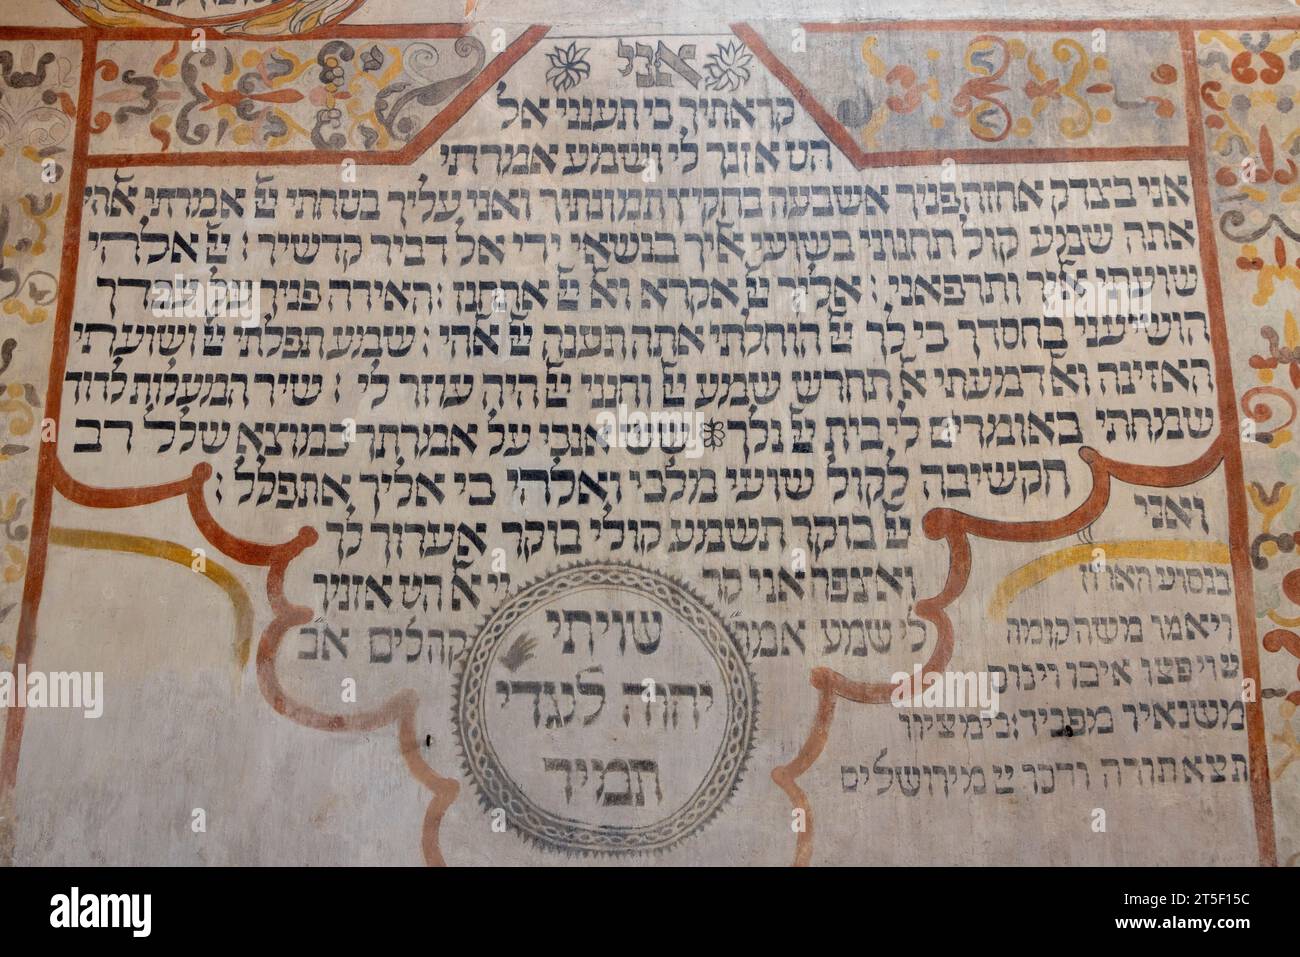 אני
קראתיך כי תענני אל
הט אזנך לי ושמע אמרתי
אני בצדק אחזה פניך אשבעה בהקיץ תמונתיך ואני עליך בטחתי אמרתי
אתה שמע קול תחנוני בשועי אליך בנשאי ידי אל דביר קדשיך : אלהי
שועתי אליך ותרפאני : אליך אקרא ואל אתחנן : האירה פניך על עבדך
הושיעני בחסדך כי לך הוחלתי אתה תענה אהי : שמע תפלתי ושועתי
האזינה ואל דמעתי אל תחרש שמע וחנני היה עוזר לי : שיר המעלות לדוד
שמחתי באומרים לי בית נלך שש אנכי על אמרתך כמוצא שלל רב
הקשיבה לקול שועי מלכי ואלהי כי אליך אתפלל :
בוקר תשמע קולי בוקר אערוך לך
ואצפה אני קר
הט אזניך
לי שמע אמר
קהלים אב
שויתי
יהוה לנגדי
תמיד
ואני
בנסוע הארון
ויאמר משה קומה
ויפצו איבך וינוס
משנאיך מפניך : כי מציון
תצא תורה ודבר יי מירושלים
alamy
Image ID: 2T5F15C
www.alamy.com